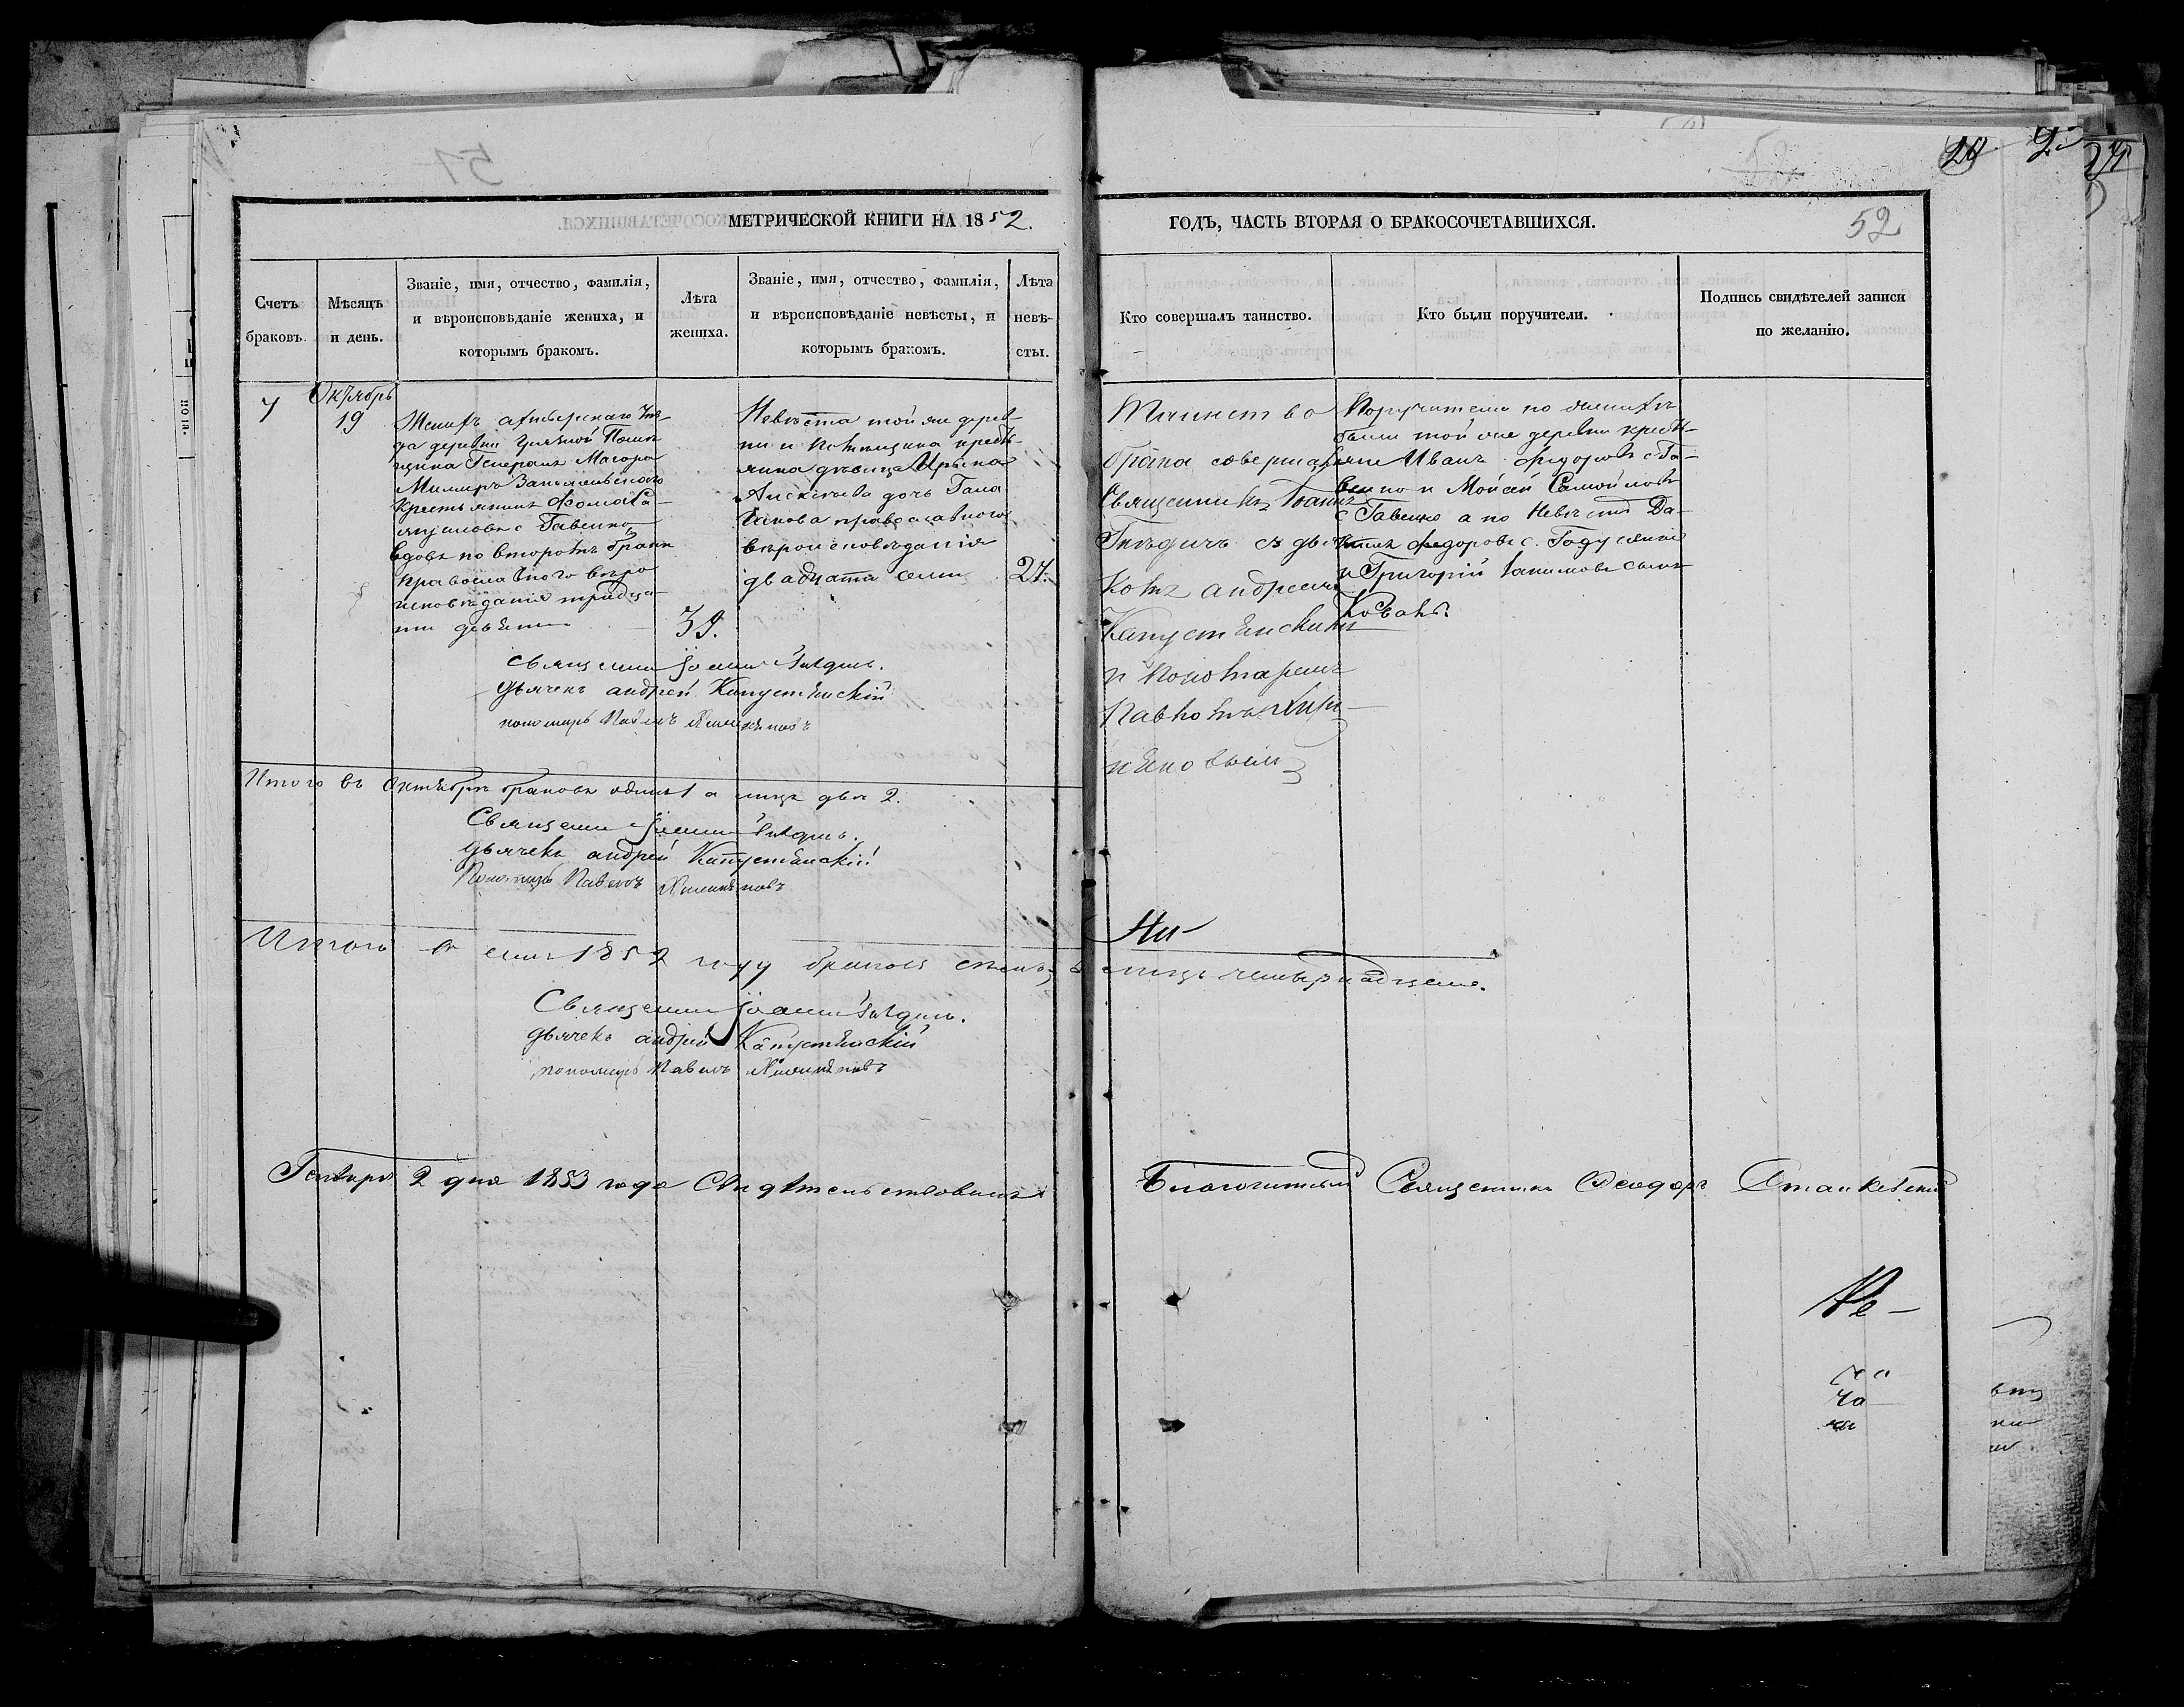 52
24
МЕТРИЧЕСКОЙ КНИГИ НА 1852.
ГОДЪ, ЧАСТЬ ВТОРАЯ О БРАКОСОЧЕТАВШИХСЯ.
52
Счетъ браковъ.
Мѣсяцъ и день.
Званіе, имя, отчество, фамилія,
и вѣроисповѣданіе жениха, и
которымъ бракомъ.
Лѣта жениха.
Званіе, имя, отчество, фамилія,
и вѣроисповѣданіе невѣсты, и
которымъ бракомъ.
Лѣта невѣ-
сты.
Кто совершалъ таинство.
Кто были поручители.
Подпись свидѣтелей записи
по желанію.
7
Октябрь
19
Женихъ Ахтырскаго уѣз-
да деревни Грязной Помѣ-
щика Генералъ Маіора
крестьянинъ Фома
Гавенко
вдовъ по второмъ бракѣ
православного вѣро
исповѣданія тридца-
ти девяти
39.
Невѣста той же дерев-
ни и Помѣщика кресть-
янка дѣвица Ирина
Алексѣева дочь
православного
вѣроисповѣданія
двадцати семи
27.
Таинство
брака совершалъ
Священникъ Іоаннъ
Гнѣдичъ съ дьяч
комъ Андреемъ
Капустянскимъ
и Пономаремъ
Павломъ
Поручители по женихѣ
были той же деревни кресть-
яне Иванъ Федоровъ с. Га-
венко и Мойсей Самойловъ
с. Гавенко а по Невѣстѣ Да-
Федоровъ с.
и Григорій Якимовъ сынъ
Коваль.
Священникъ Іоаннъ Гнѣдичъ.
Дьячекъ Андрей Капустянскій
пономарь Павелъ
Итого въ Октябрѣ браковъ одинъ 1 а лицъ два 2.
Священникъ Іоаннъ Гнѣдичъ.
Дьячекъ Андрей Капустянскій
Пономарь Павелъ
Итого въ семъ 1852 году браковъ семь, а лицъ четырнадцать.
Священникъ Іоаннъ Гнѣдичъ.
Дьячекъ Андрей Капустянскій
пономарь Павелъ
Генваря 2 дня 1853 года Свидѣтельствовалъ Благочинный Священникъ Феодоръ Станкевскій